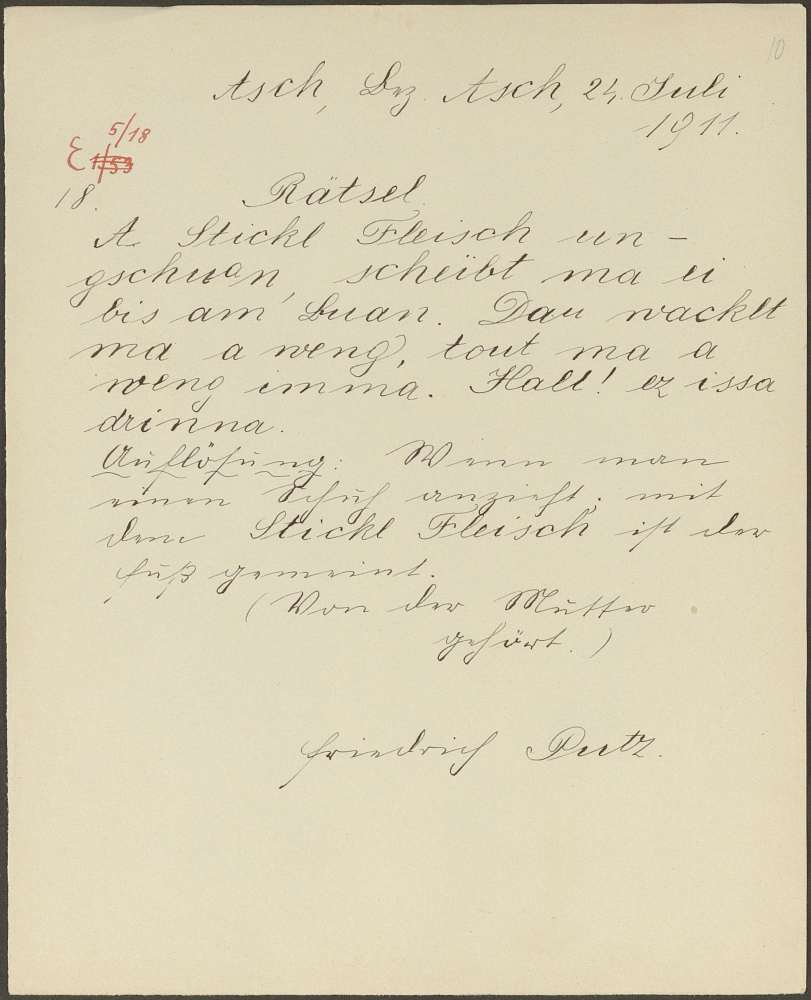 10
Asch, Bez. Asch, 24. Juli
1911.
E 5/18
18.
Rätsel.
A Stickl Fleisch un-
gschuan, scheibt ma ei
bis am Buan. Dau wacklt
ma a weng, tout ma a
weng imma. Halt! ez issa
drinna.
Auflösung: Wenn man
einen Schuh anzieht; mit
dem Stickl Fleisch ist der
Fuß gemeint.
(Von der Mutter
gehört.)
Friedrich Putz.